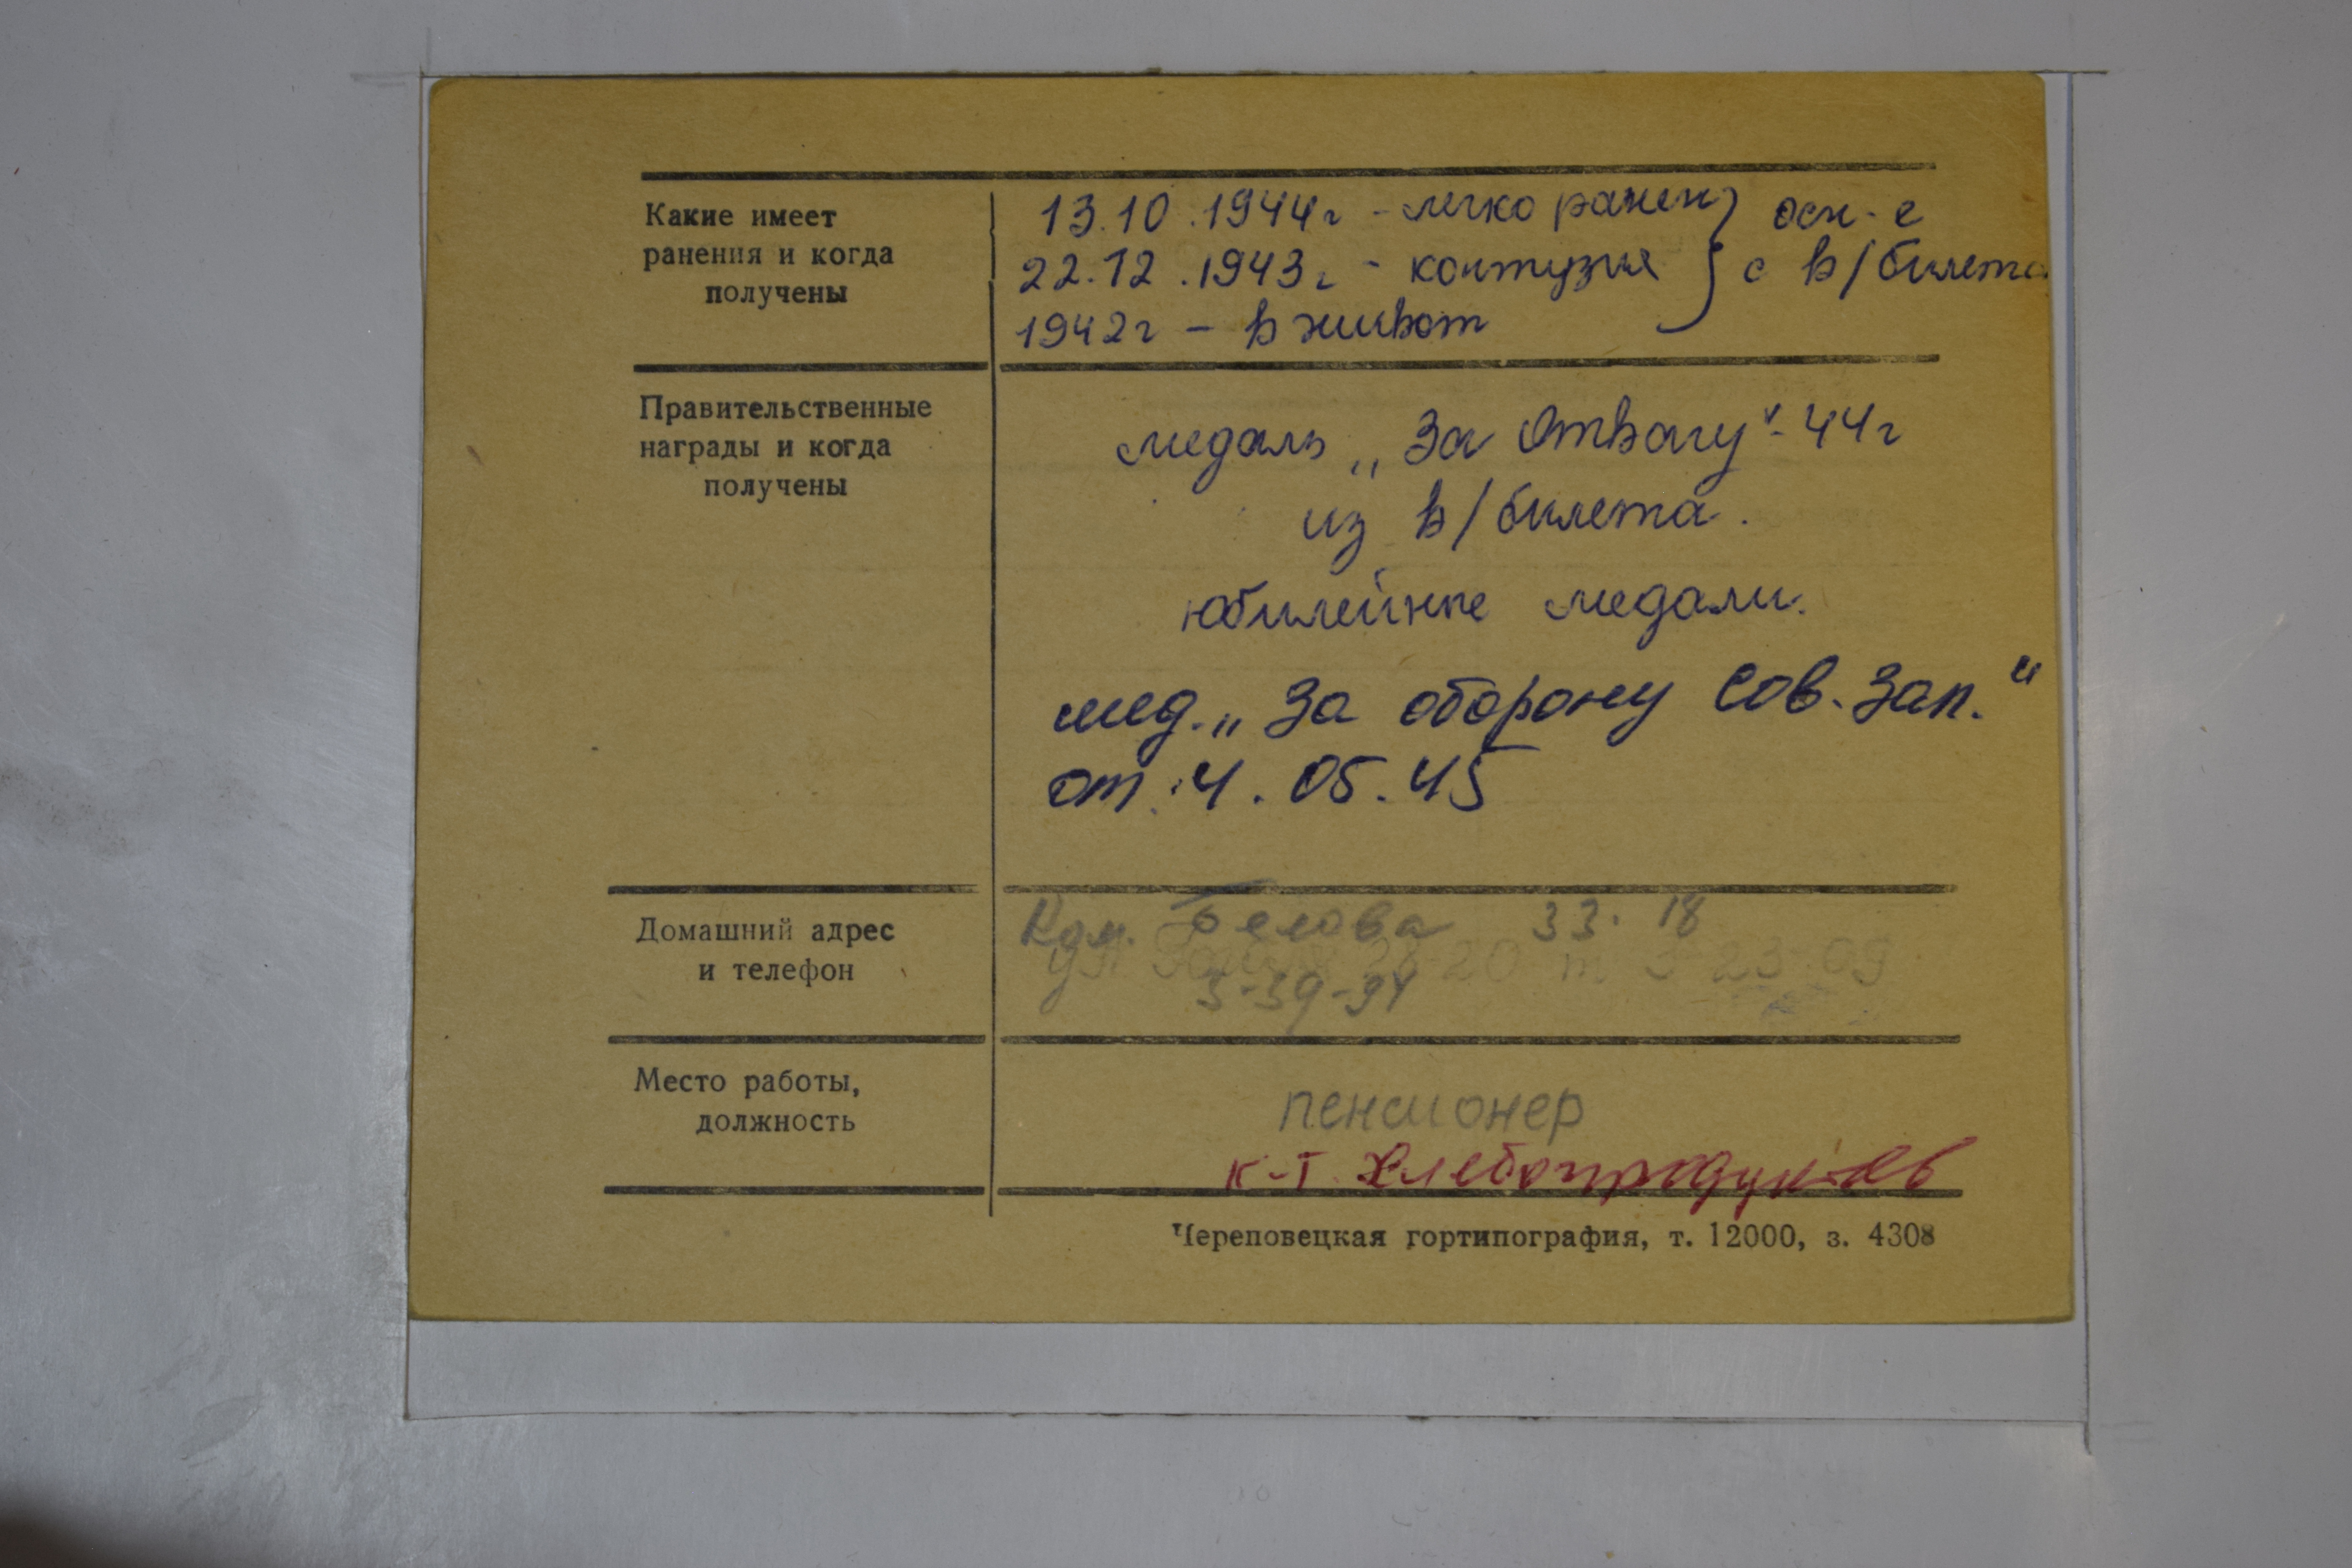 Какие имеет
ранения и когда
получены
13.10.1944г - легко ранен } осн-е
22.12.1943г - контузия } с в/билета
1942г - в живот
Правительственные
награды и когда
получены
медаль „За Отвагу" - 44г
из в/билета.
юбилейные медали.
мед. „За оборону Сов. Зап."
от 4.05.45
Домашний адрес
и телефон
Белова 33-18
3-39-94
Место работы,
должность
пенсионер
к-т. Хлебопродуктов
Череповецкая гортипография, т. 12000, з. 4308